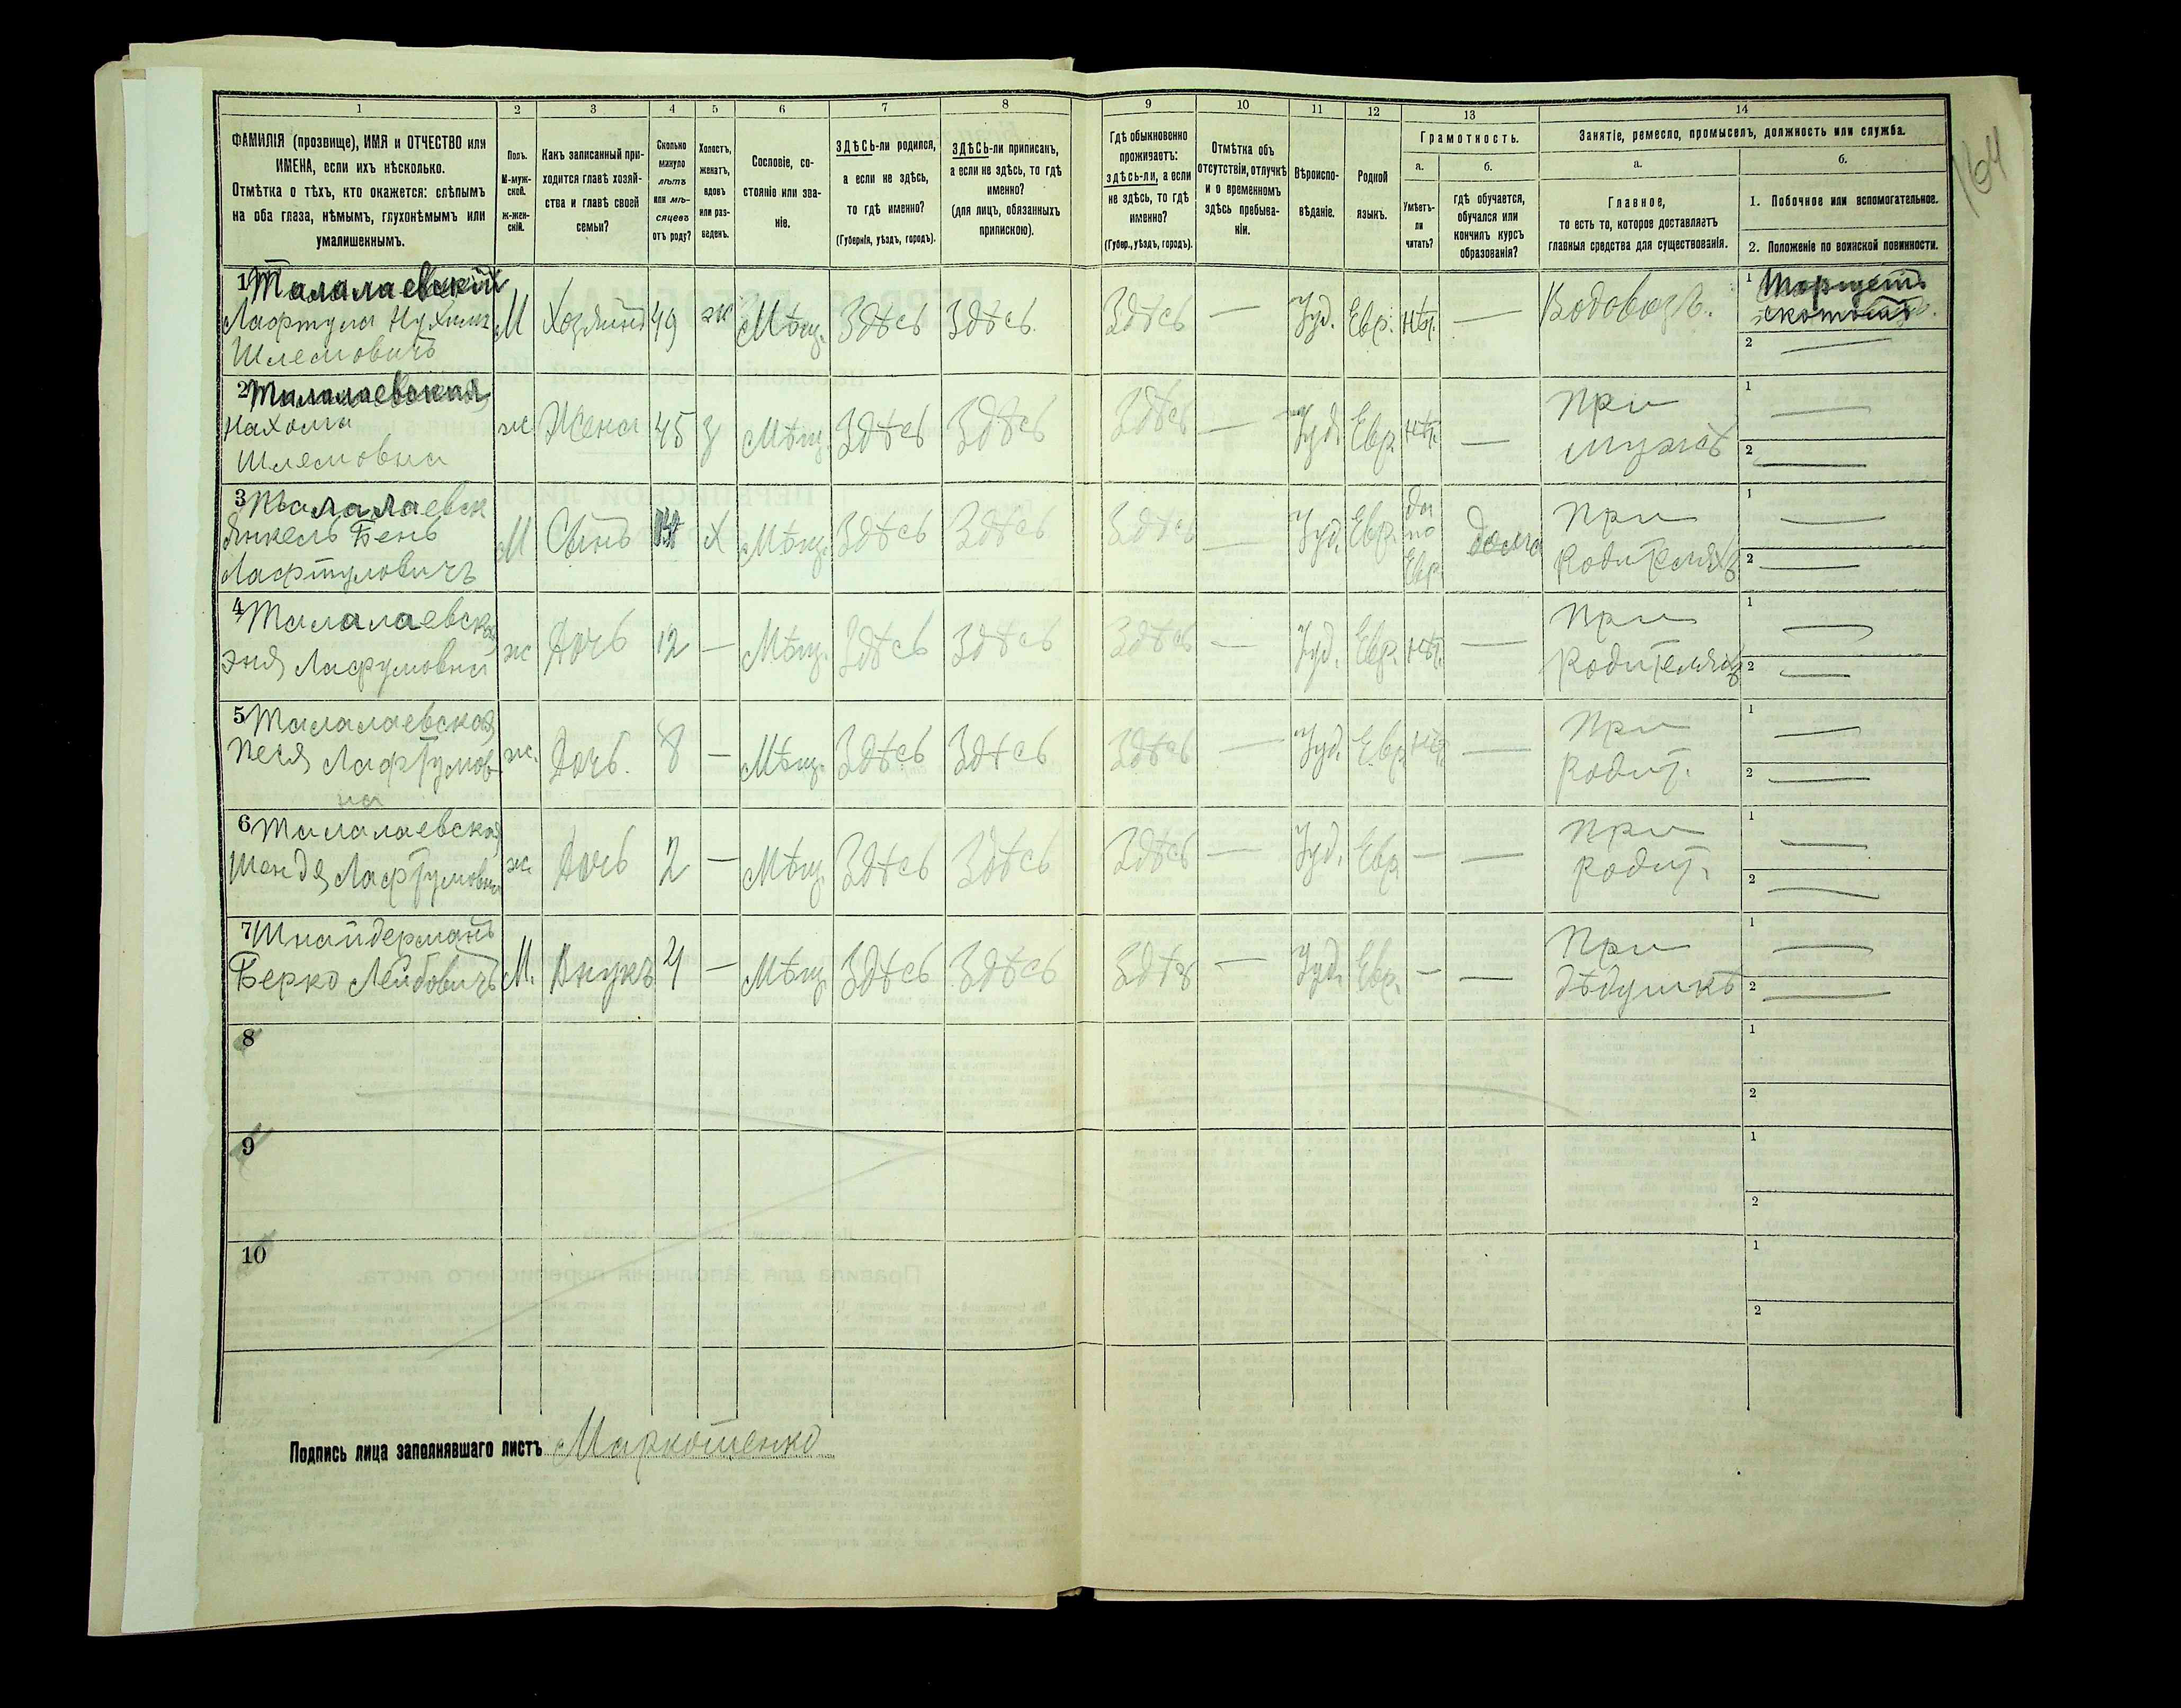 1 2 3 4 5 6 7 8 9 10 11 12 13 14
ФАМИЛІЯ (прозвище), ИМЯ и ОТЧЕСТВО или
ИМЕНА, если ихъ нѣсколько.
Отмѣтка о тѣхъ, кто окажется: слѣпымъ
на оба глаза, нѣмымъ, глухонѣмымъ или
умалишеннымъ.
Полъ.
М-муж-
ской.
ж-жен-
скій.
Какъ записанный при-
ходится главѣ хозяй-
ства и главѣ своей
семьи?
Сколько
минуло
лѣтъ
или мѣ-
сяцевъ
отъ роду?
Холостъ,
женатъ,
вдовъ
или раз-
веденъ.
Сословіе, со-
стояніе или зва-
ніе.
ЗДѢСЬ-ли родился,
а если не здѣсь,
то гдѣ именно?
(Губернія, уѣздъ, городъ).
ЗДѢСЬ-ли приписанъ,
а если не здѣсь, то гдѣ
именно?
(для лицъ, обязанныхъ
припискою).
Гдѣ обыкновенно
проживаетъ:
здѣсь-ли, а если
не здѣсь, то гдѣ
именно?
(Губер., уѣздъ, городъ).
Отмѣтка объ
отсутствіи, отлучкѣ
и о временномъ
здѣсь пребыва-
ніи.
Вѣроиспо-
вѣданіе.
Родной
языкъ.
Грамотность.
а.
Умѣетъ-
ли
читать?
б.
гдѣ обучается,
обучался или
кончилъ курсъ
образованія?
Занятіе, ремесло, промыселъ, должность или служба.
а.
Главное,
то есть то, которое доставляетъ
главныя средства для существованія.
б.
1. Побочное или вспомогательное.
2. Положеніе по воинской повинности.
164
1 Талалаевскій
Лафтула Нухимъ
Шлемовичъ
М Хозяинъ 49 ж Мѣщ. Здѣсь Здѣсь Здѣсь — Іуд. Евр. нѣт. — Водовозъ.
1 Торгуетъ
скотомъ
2 —
2 Талалаевская
Нахома
Шлемовна
ж Жена 45 З Мѣщ. Здѣсь Здѣсь Здѣсь — Іуд. Евр. нѣт. —
при
мужѣ
1 —
2 —
3 Талалаевск
Янкель Бень
Лафтуловичъ
М Сынъ Х Мѣщ. Здѣсь Здѣсь Здѣсь — Іуд. Евр.
да
по
Евр.
дома
при
родителяхъ
1 —
2 —
4 Талалаевская
Эня Лафтуловна
ж Дочь 12 — Мѣщ. Здѣсь Здѣсь Здѣсь — Іуд. Евр. нѣт. —
при
родителяхъ
1 —
2 —
5 Талалаевская
Песя Лафтулов
на
ж. Дочь. 8 — Мѣщ. Здѣсь Здѣсь Здѣсь — Іуд. Евр. нѣт. —
при
родит.
1 —
2 —
6 Талалаевская
Шендя Лафтуловна
ж Дочь 2 — Мѣщ. Здѣсь Здѣсь Здѣсь — Іуд. Евр — —
при
родит.
1 —
2 —
7 Шнайдерманъ
Берко Лейбовичъ
М. Внукъ 4 — Мѣщ. Здѣсь Здѣсь Здѣсь — Іуд. Евр. — —
при
дѣдушкѣ
1 —
2 —
8
1
2
9
1
2
10
1
2
Подпись лица заполнявшаго листъ Маркотенко